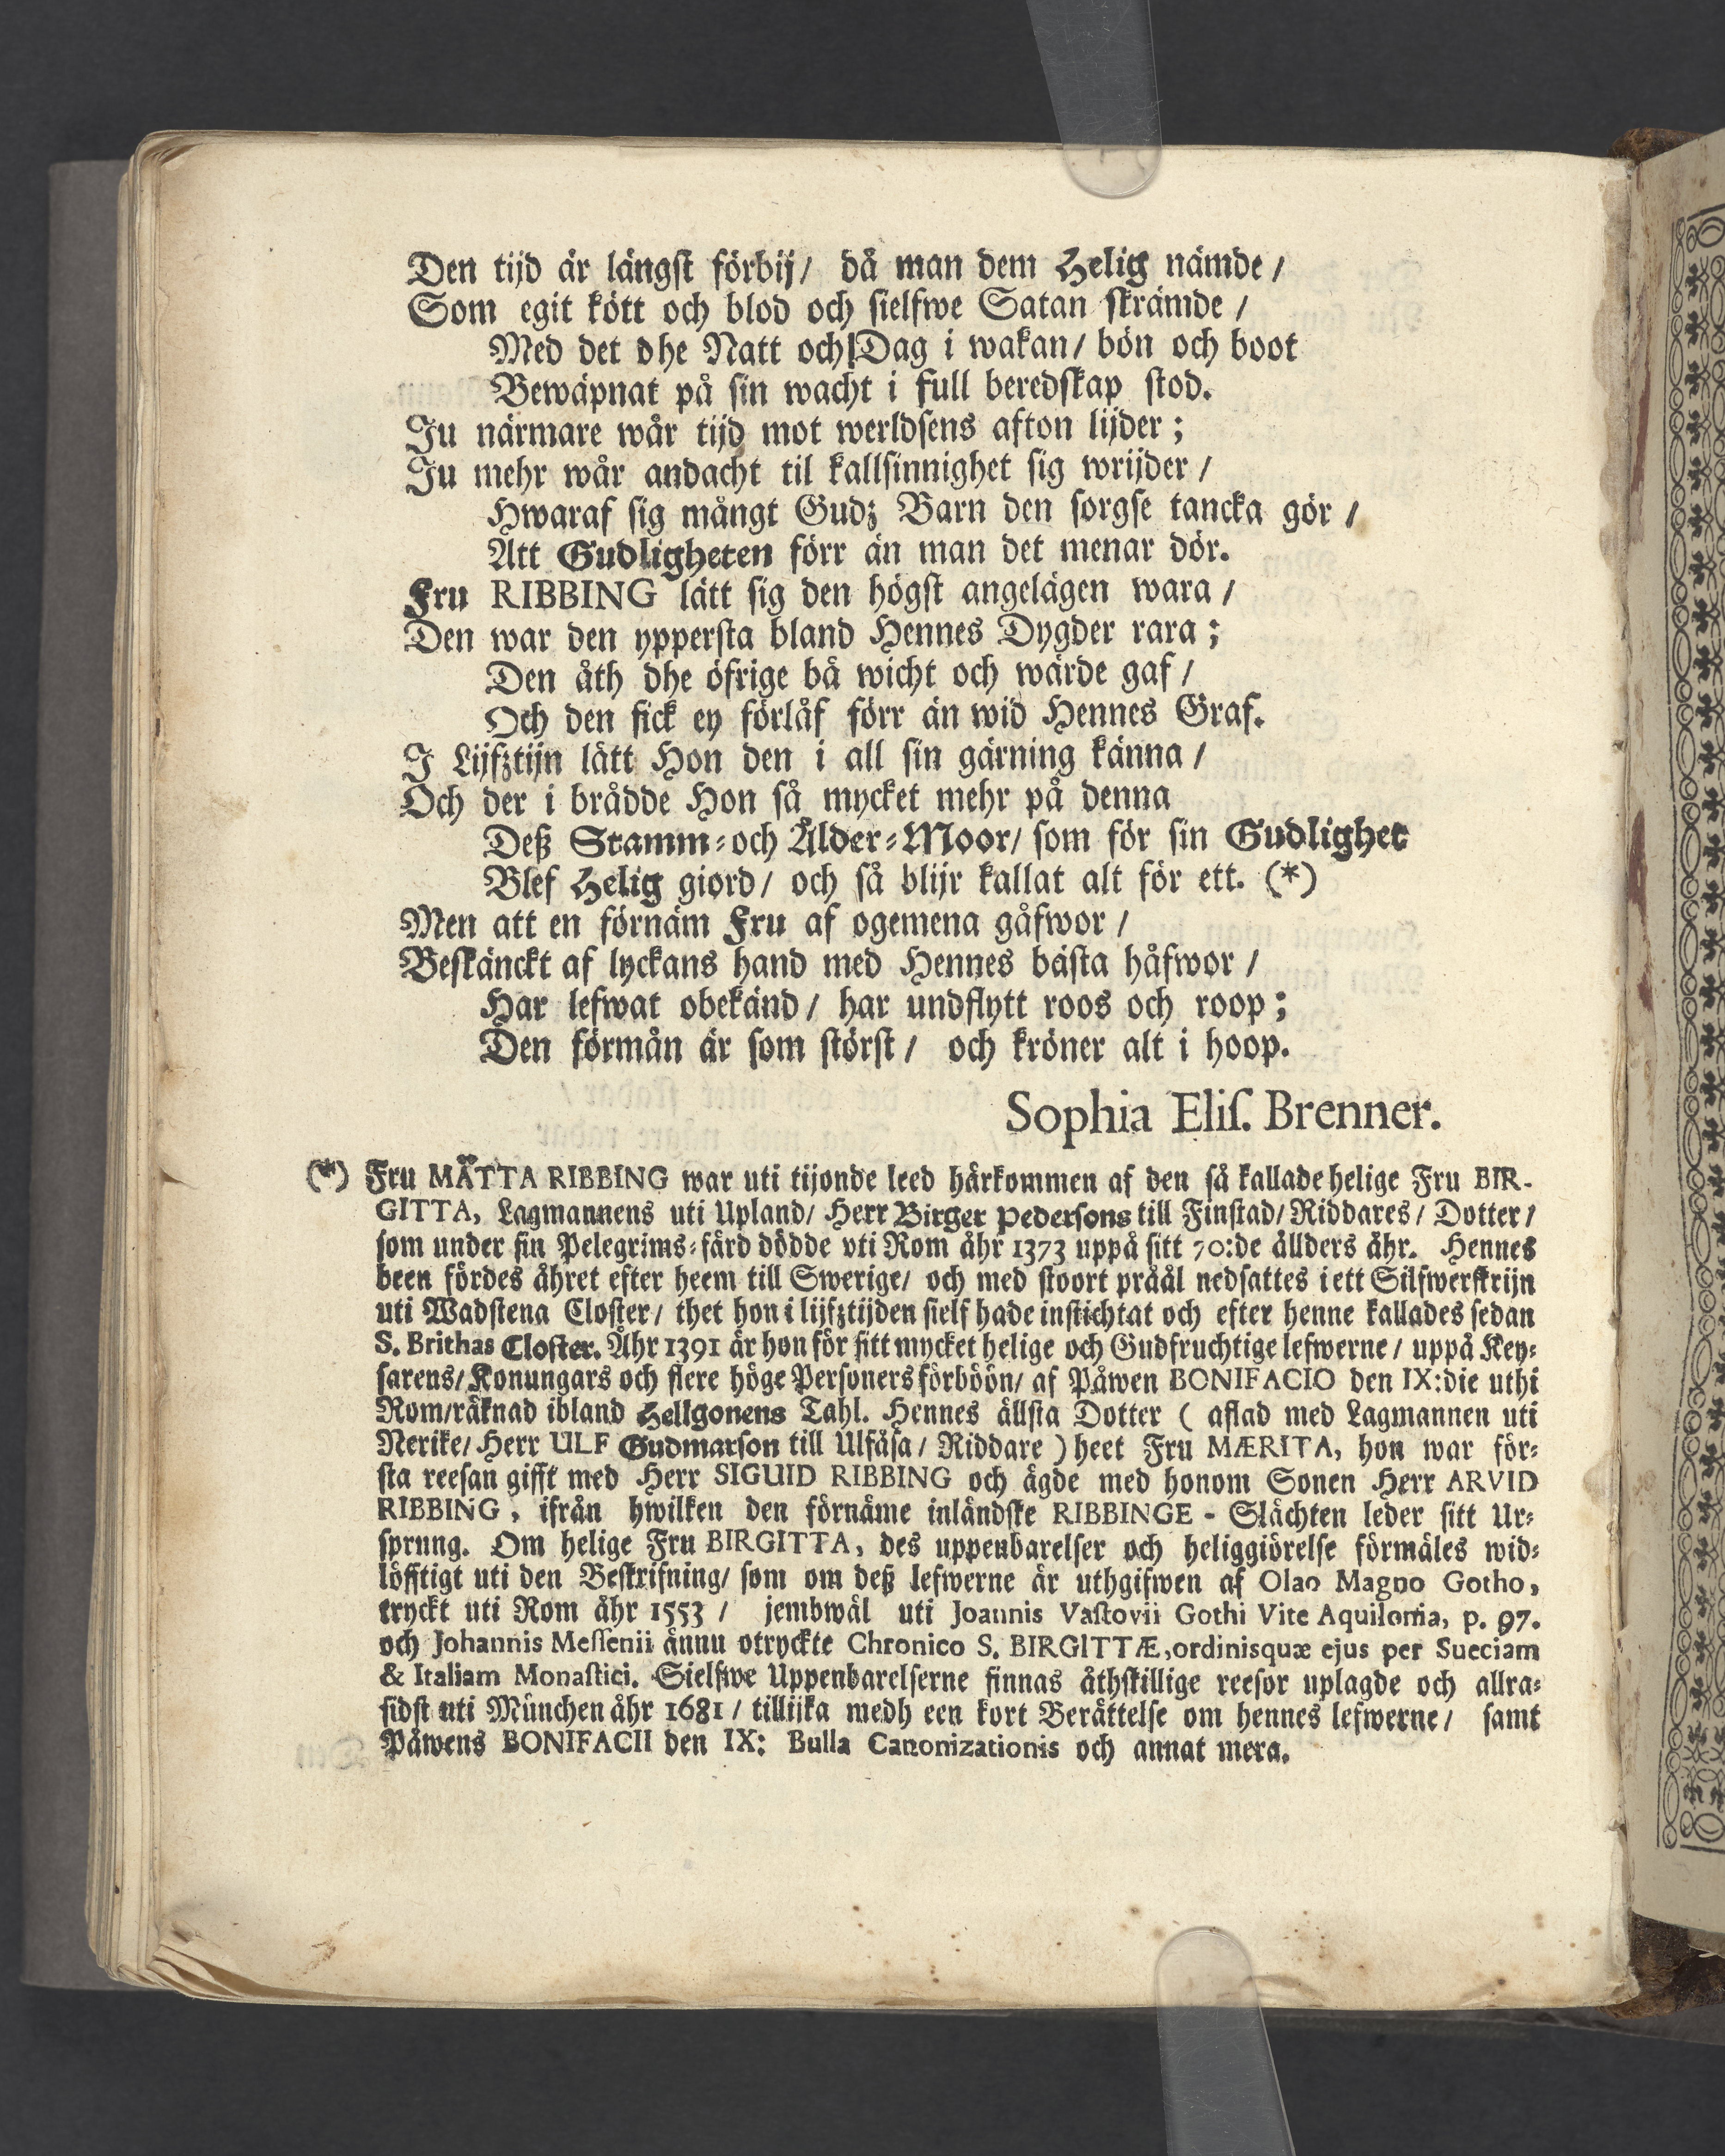 Den tijd är längst förbij/ då man dem Helig nämde/
Som egit kött och blod och sielfwe Satan skrämde/
Med det dhe Natt och Dag i wakan/ bön och boot
Bewäpnat på sin wacht i full beredskap stod.
Ju närmare wår tijd mot werldsens afton lijder;
Ju mehr wår andacht til kallsinnighet sig wrijder/
Hwaraf sig mångt Gudz Barn den sorgse tancka gör/
Att Gudligheten förr än man det menar dör.
Fru RIBBING lätt sig den högst angelägen wara/
Den war den yppersta bland Hennes Dygder rara;
Den åth dhe öfrige bå wicht och wärde gaf/
Och den fick ey förlåf förr än wid Hennes Graf.
I Lijfztijn lätt Hon den i all sin gärning känna/
Och der i brådde Hon så mycket mehr på denna
Deß Stamm- och Ålder-Moor/ som för sin Gudlighet
Blef Helig giord/ och så blijr kallat alt för ett. (*)
Men att en förnäm Fru af ogemena gåfwor/
Beskänckt af lyckans hand med Hennes bästa håfwor/
Har lefwat obekänd/ har undflytt roos och roop;
Den förmån är som störst/ och kröner alt i hoop.
Sophia Elis. Brenner.
(*) Fru MÄTTA RIBBING war uti tijonde leed härkommen af den så kallade helige Fru BIR-
GITTA, Lagmannens uti Upland/ Herr Birger Pedersons till Finstad/ Riddares/ Dotter/
som under sin Pelegrims-färd dödde vti Rom åhr 1373 uppå sitt 70:de ållders åhr. Hennes
been fördes åhret efter heem till Swerige/ och med stoort pråål nedsattes i ett Silfwerskrijn
uti Wadstena Closter/ thet hon i lijfztijden sielf hade instichtat och efter henne kallades sedan
S. Brithas Closter. Åhr 1391 är hon för sitt mycket helige och Gudfruchtige lefwerne/ uppå Key-
sarens/ Konungars och flere höge Personers förböön/ af Påwen BONIFACIO den IX:die uthi
Rom/ räknad ibland Hellgonens Tahl. Hennes ällsta Dotter ( aflad med Lagmannen uti
Nerike/ Herr ULF Gudmarson till Ulfåsa/ Riddare ) heet Fru MÆRITA, hon war för-
sta reesan gifft med Herr SIGUID RIBBING och ägde med honom Sonen Herr ARVID
RIBBING, ifrån hwilken den förnäme inländske RIBBINGE - Slächten leder sitt Ur-
sprung. Om helige Fru BIRGITTA, des uppenbarelser och heliggiörelse förmäles wid-
löfftigt uti den Beskrifning/ som om deß lefwerne är uthgifwen af Olao Magno Gotho,
tryckt uti Rom åhr 1553 / jembwäl uti Joannis Vastovii Gothi Vite Aquilonia, p. 97.
och Johannis Messenii ännu otryckte Chronico S. BIRGITTÆ, ordinisquæ ejus per Sueciam
& Italiam Monastici. Sielfwe Uppenbarelserne finnas åthskillige reesor uplagde och allra-
sidst uti München åhr 1681 / tillijka medh een kort Berättelse om hennes lefwerne/ samt
Påwens BONIFACII den IX: Bulla Canonizationis och annat mera.